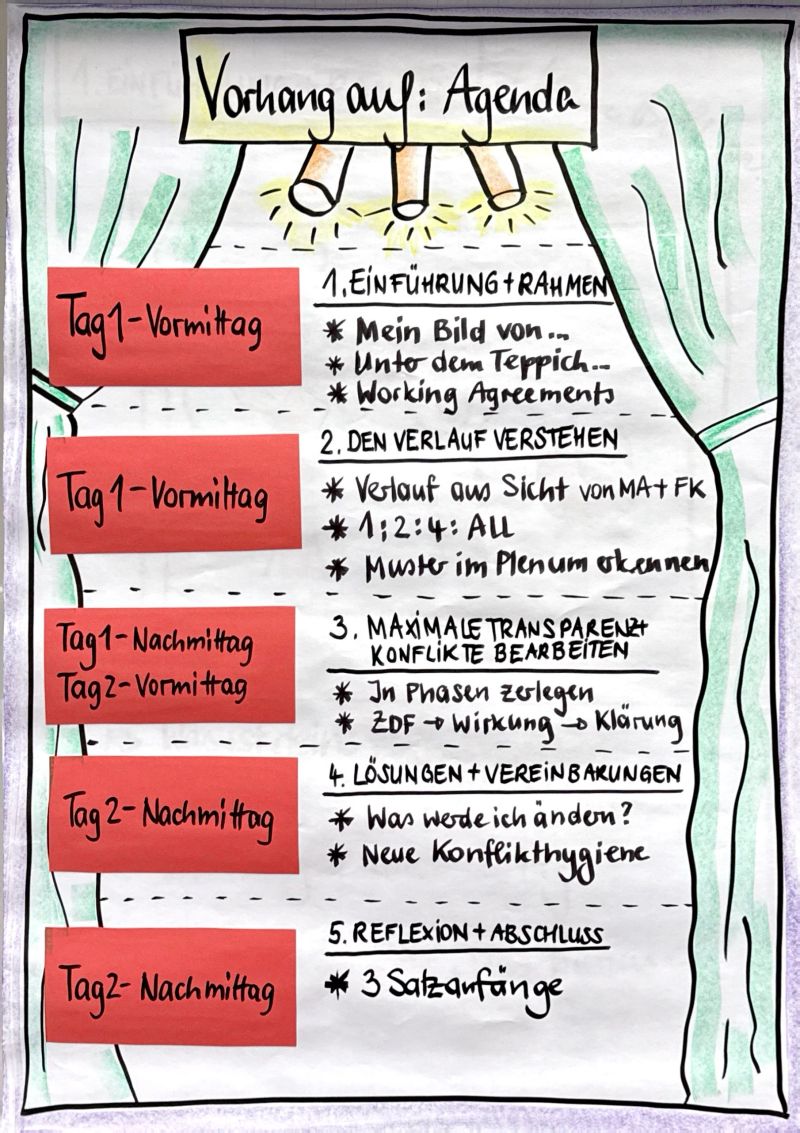 Vorhang auf: Agenda
Tag1-Vormittag
1. EINFÜHRUNG + RAHMEN
* Mein Bild von...
* Unter dem Teppich...
* Working Agreements
Tag1-Vormittag
2. DEN VERLAUF VERSTEHEN
* Verlauf aus Sicht von MA + FK
* 1:2:4: ALL
* Muster im Plenum erkennen
Tag1-Nachmittag
Tag2-Vormittag
3. MAXIMALE TRANSPARENZ+
KONFLIKTE BEARBEITEN
* In Phasen zerlegen
* ZDF → Wirkung → Klärung
Tag2-Nachmittag
4. LÖSUNGEN + VEREINBARUNGEN
* Was werde ich ändern?
* Neue Konflikthygiene
Tag2-Nachmittag
5. REFLEXION + ABSCHLUSS
* 3 Satzanfänge